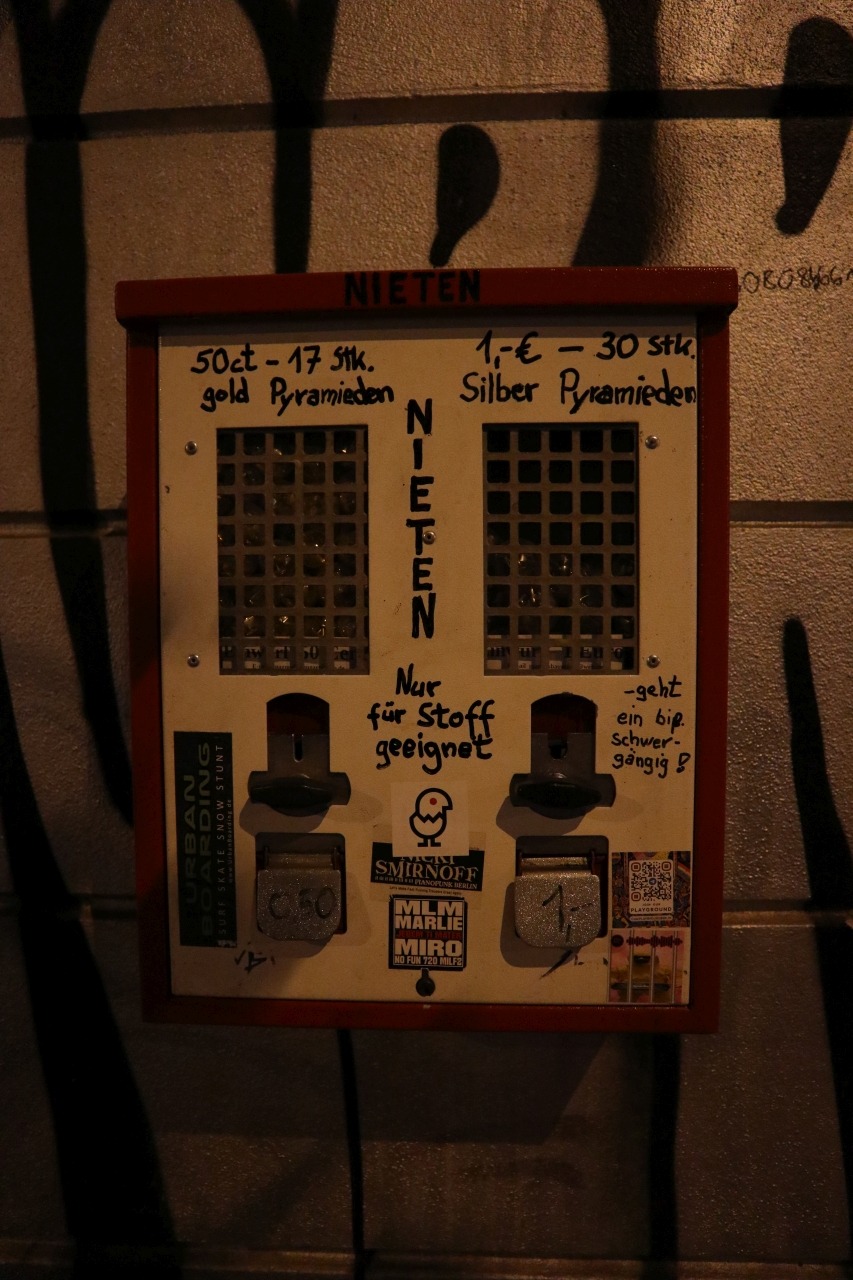 NIETEN
50ct - 17 Stk.
gold Pyramieden
1,-€ - 30 Stk.
Silber Pyramieden
NIETEN
Nur
für Stoff
geeignet
-geht
ein biß.
schwer-
gängig!
URBAN
BOARDING
SURF SKATE SNOW STUNT
SMIRNOFF
PIANOPUNK BERLIN
MLM
MARLIE
MIRO
NO FUN 720 MILFZ
PLAYGROUND
0.50
1,-